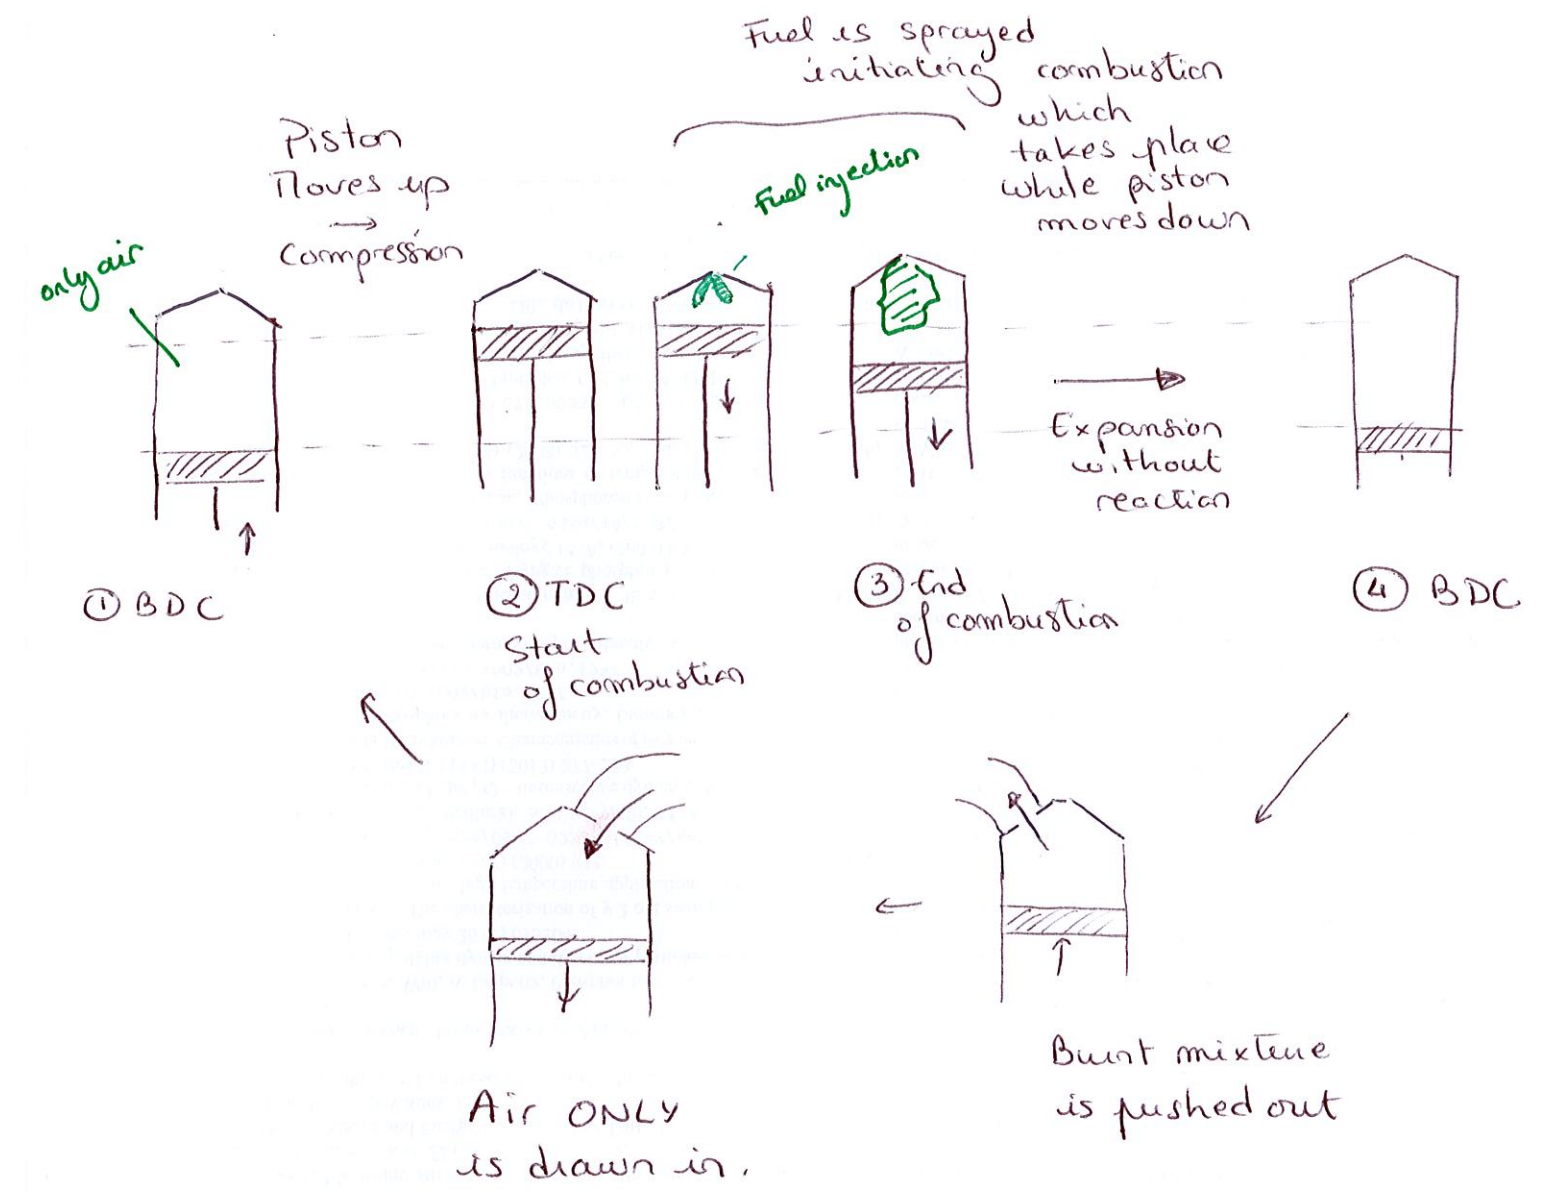 Fuel is sprayed
initiating combustion
which
takes place
while piston
moves down
Piston
Moves up
→
Compression
only air
Fuel injection
Expansion
without
reaction
① BDC
② TDC
Start
of combustion
③ End
of combustion
④ BDC
Air ONLY
is drawn in.
Burnt mixture
is pushed out